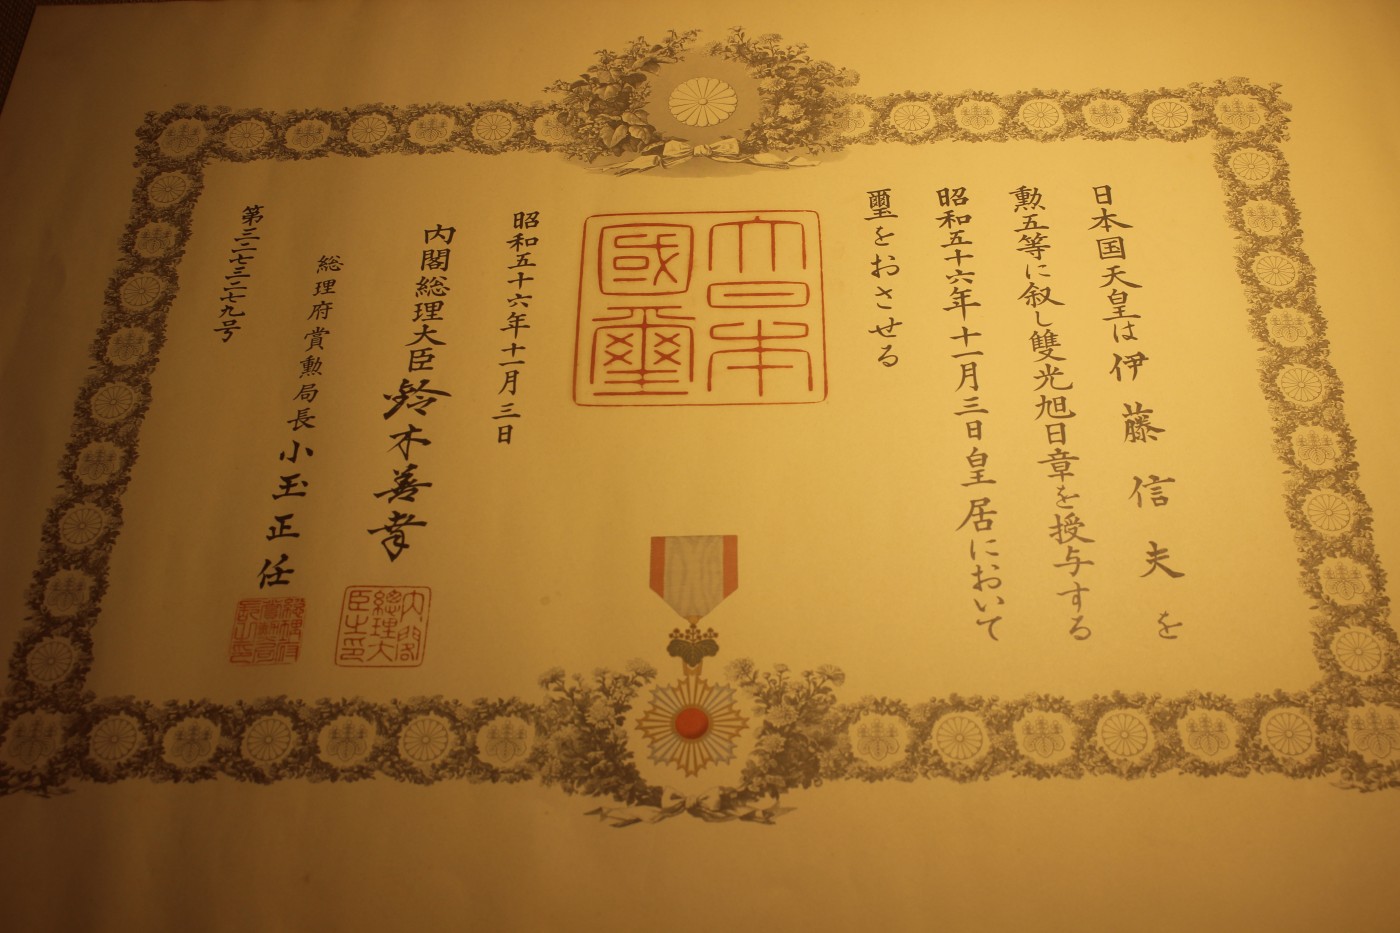 日本国天皇は伊藤信夫を
勲五等に叙し雙光旭日章を授与する
昭和五十六年十一月三日皇居において
璽をおさせる
大日本國璽
昭和五十六年十一月三日
内閣総理大臣鈴木善幸
内閣総理大臣之印
総理府賞勲局長小玉正任
総理府賞勲局長之印
第三二七三二七九号